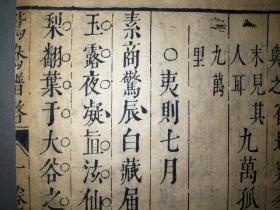 未見其
人耳
九萬孤
九萬
里
○夷則七月
素商驚辰白藏届
玉露夜凝直泫仙
梨翻葉于大谷之